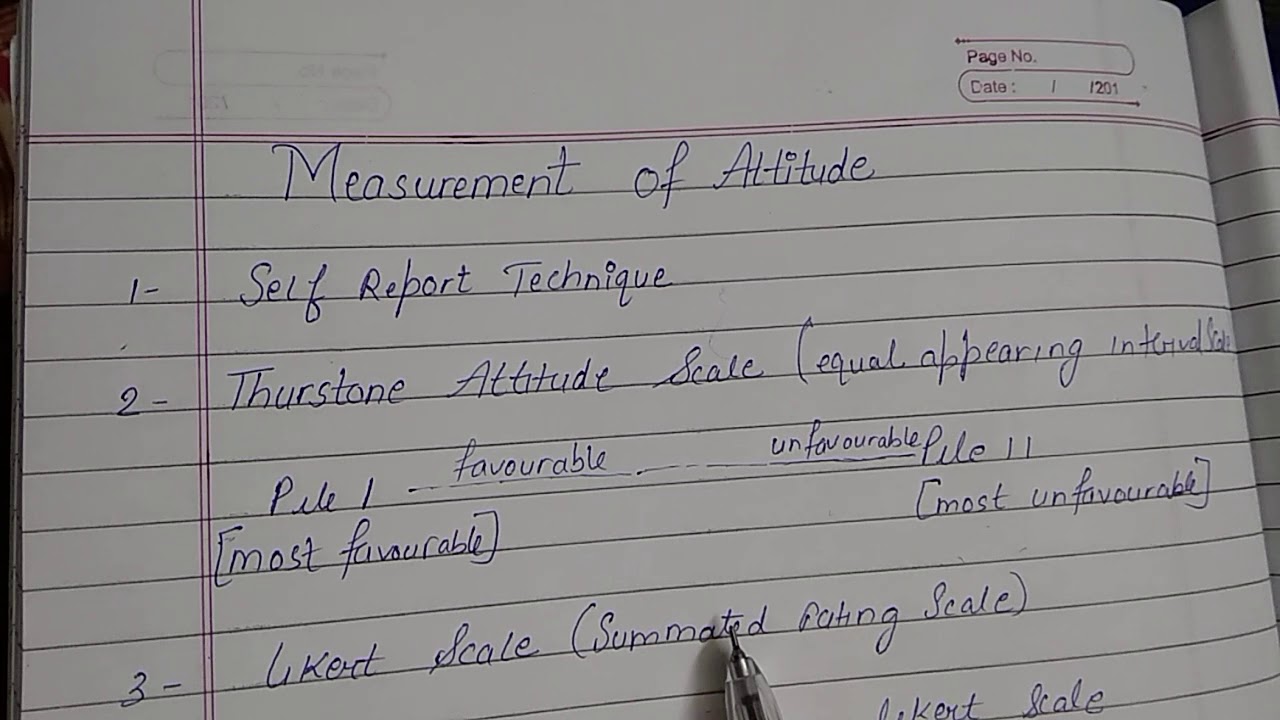 Page No.
Date : / /201
Measurement of Attitude
1- Self Report Technique
2- Thurstone Attitude Scale (equal appearing interval Scale
Pile 1 favourable unfavourable Pile 11
[most favourable] [most unfavourable]
3- Likert Scale (Summated rating Scale)
Likert Scale